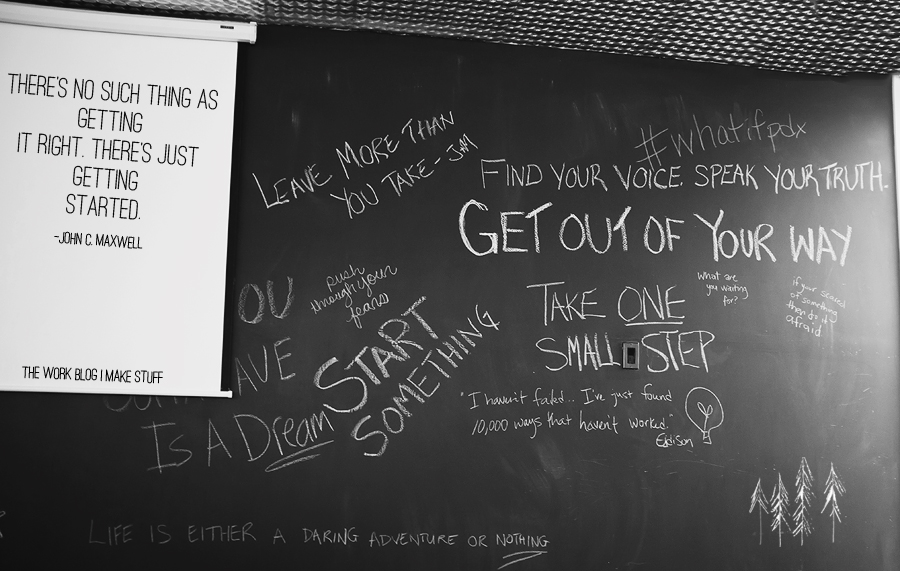 THERE'S NO SUCH THING AS
GETTING
IT RIGHT. THERE'S JUST
GETTING
STARTED.
-JOHN C. MAXWELL
THE WORK BLOG I MAKE STUFF
LEAVE MORE THAN
YOU TAKE - JM
#whatifpdx
FIND YOUR VOICE. SPEAK YOUR TRUTH.
GET OUT OF YOUR WAY
push
through your
fears
what are
you waiting
for?
if your scared
of something
then do it
afraid
TAKE ONE
SMALL STEP
OU
AVE
IS A Dream
START
SOMETHING
"I haven't failed... I've just found
10,000 ways that haven't worked."
Edison
LIFE IS EITHER A DARING ADVENTURE OR NOTHING